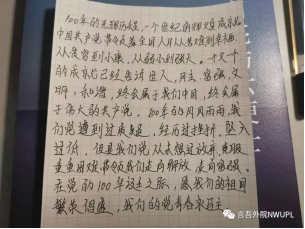 100年的光辉历程,一个世纪的辉煌成就
中国共产党带领着全国人民从苦难到幸福,
从贫穷到小康,从弱小到强大。一个又一个
的成就已经卷进世人,民主,富强,文
明,和谐,终会属于我们中国,终会属
于伟大的共产党,100年的风风雨雨,我
们党遭到过质疑,经历过挫折,坠入
过低,但是我们党,从未想过放弃,克服
重重困难带领我们走向解放,走向富强。
在党的100年诞生之际,愿我们的祖国
繁荣昌盛,我们的党青春永驻
言吾外院NWUPL